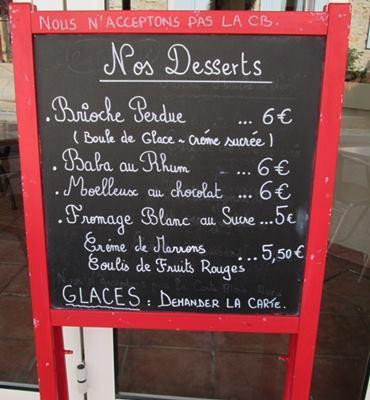 Nous n'acceptons pas la CB.
Nos Desserts
. Brioche Perdue ... 6€
( Boule de Glace ~ Crème sucrée )
. Baba au Rhum ... 6€
. Moelleux au chocolat ... 6€
. Fromage Blanc au Sucre ... 5€
Crème de Marrons ... 5,50€
Coulis de Fruits Rouges
GLACES : Demander la carte.